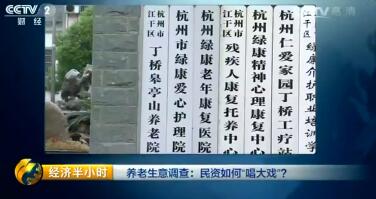 CCTV 2
财经
CCTV 高清
杭州市江干区
丁桥皋亭山养老院
杭州市绿康爱心护理院
杭州绿康老年康复医院
杭州市江干区
残疾人康复托养中心
杭州绿康精神心理康复中心
杭州仁爱家园丁桥工疗站
江干区
经济半小时
养老生意调查：民资如何“唱大戏”？